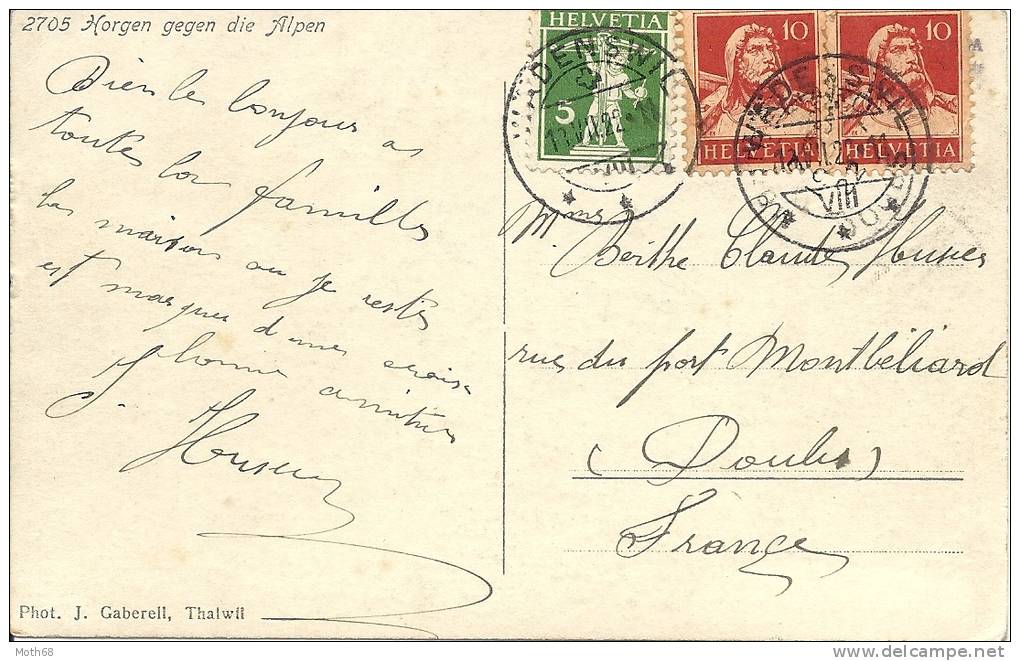 2705 Horgen gegen die Alpen
Bien le bonjour a
toutes la famille
la maison ou je restes
est marquer d'une croix
bonne amitier
HELVETIA
5
10
HELVETIA
10
HELVETIA
WÄDENSWIL
VIII
WÄDENSWIL
VIII
Mme Berthe Claude
rue du port Montbéliard
(Doubs)
France
Phot. J. Gaberell, Thalwil
Moth68
www.delcampe.net